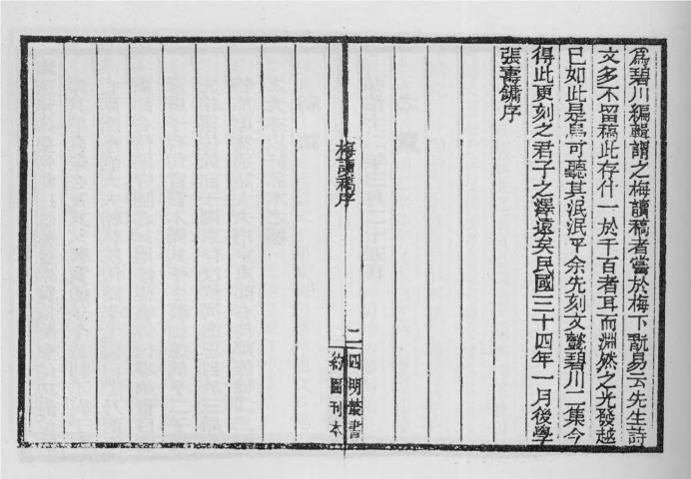 爲碧川編輯謂之梅讀稿者嘗於梅下翫易云先生詩
文多不留稿此存什一於千百者耳而淵然之光發越
已如此是烏可聽其泯泯乎余先刻文懿碧川二集今
得此更刻之君子之澤遠矣民國三十四年一月後學
張壽鏞序
梅讀稿序
二
四明叢書
約園刊本